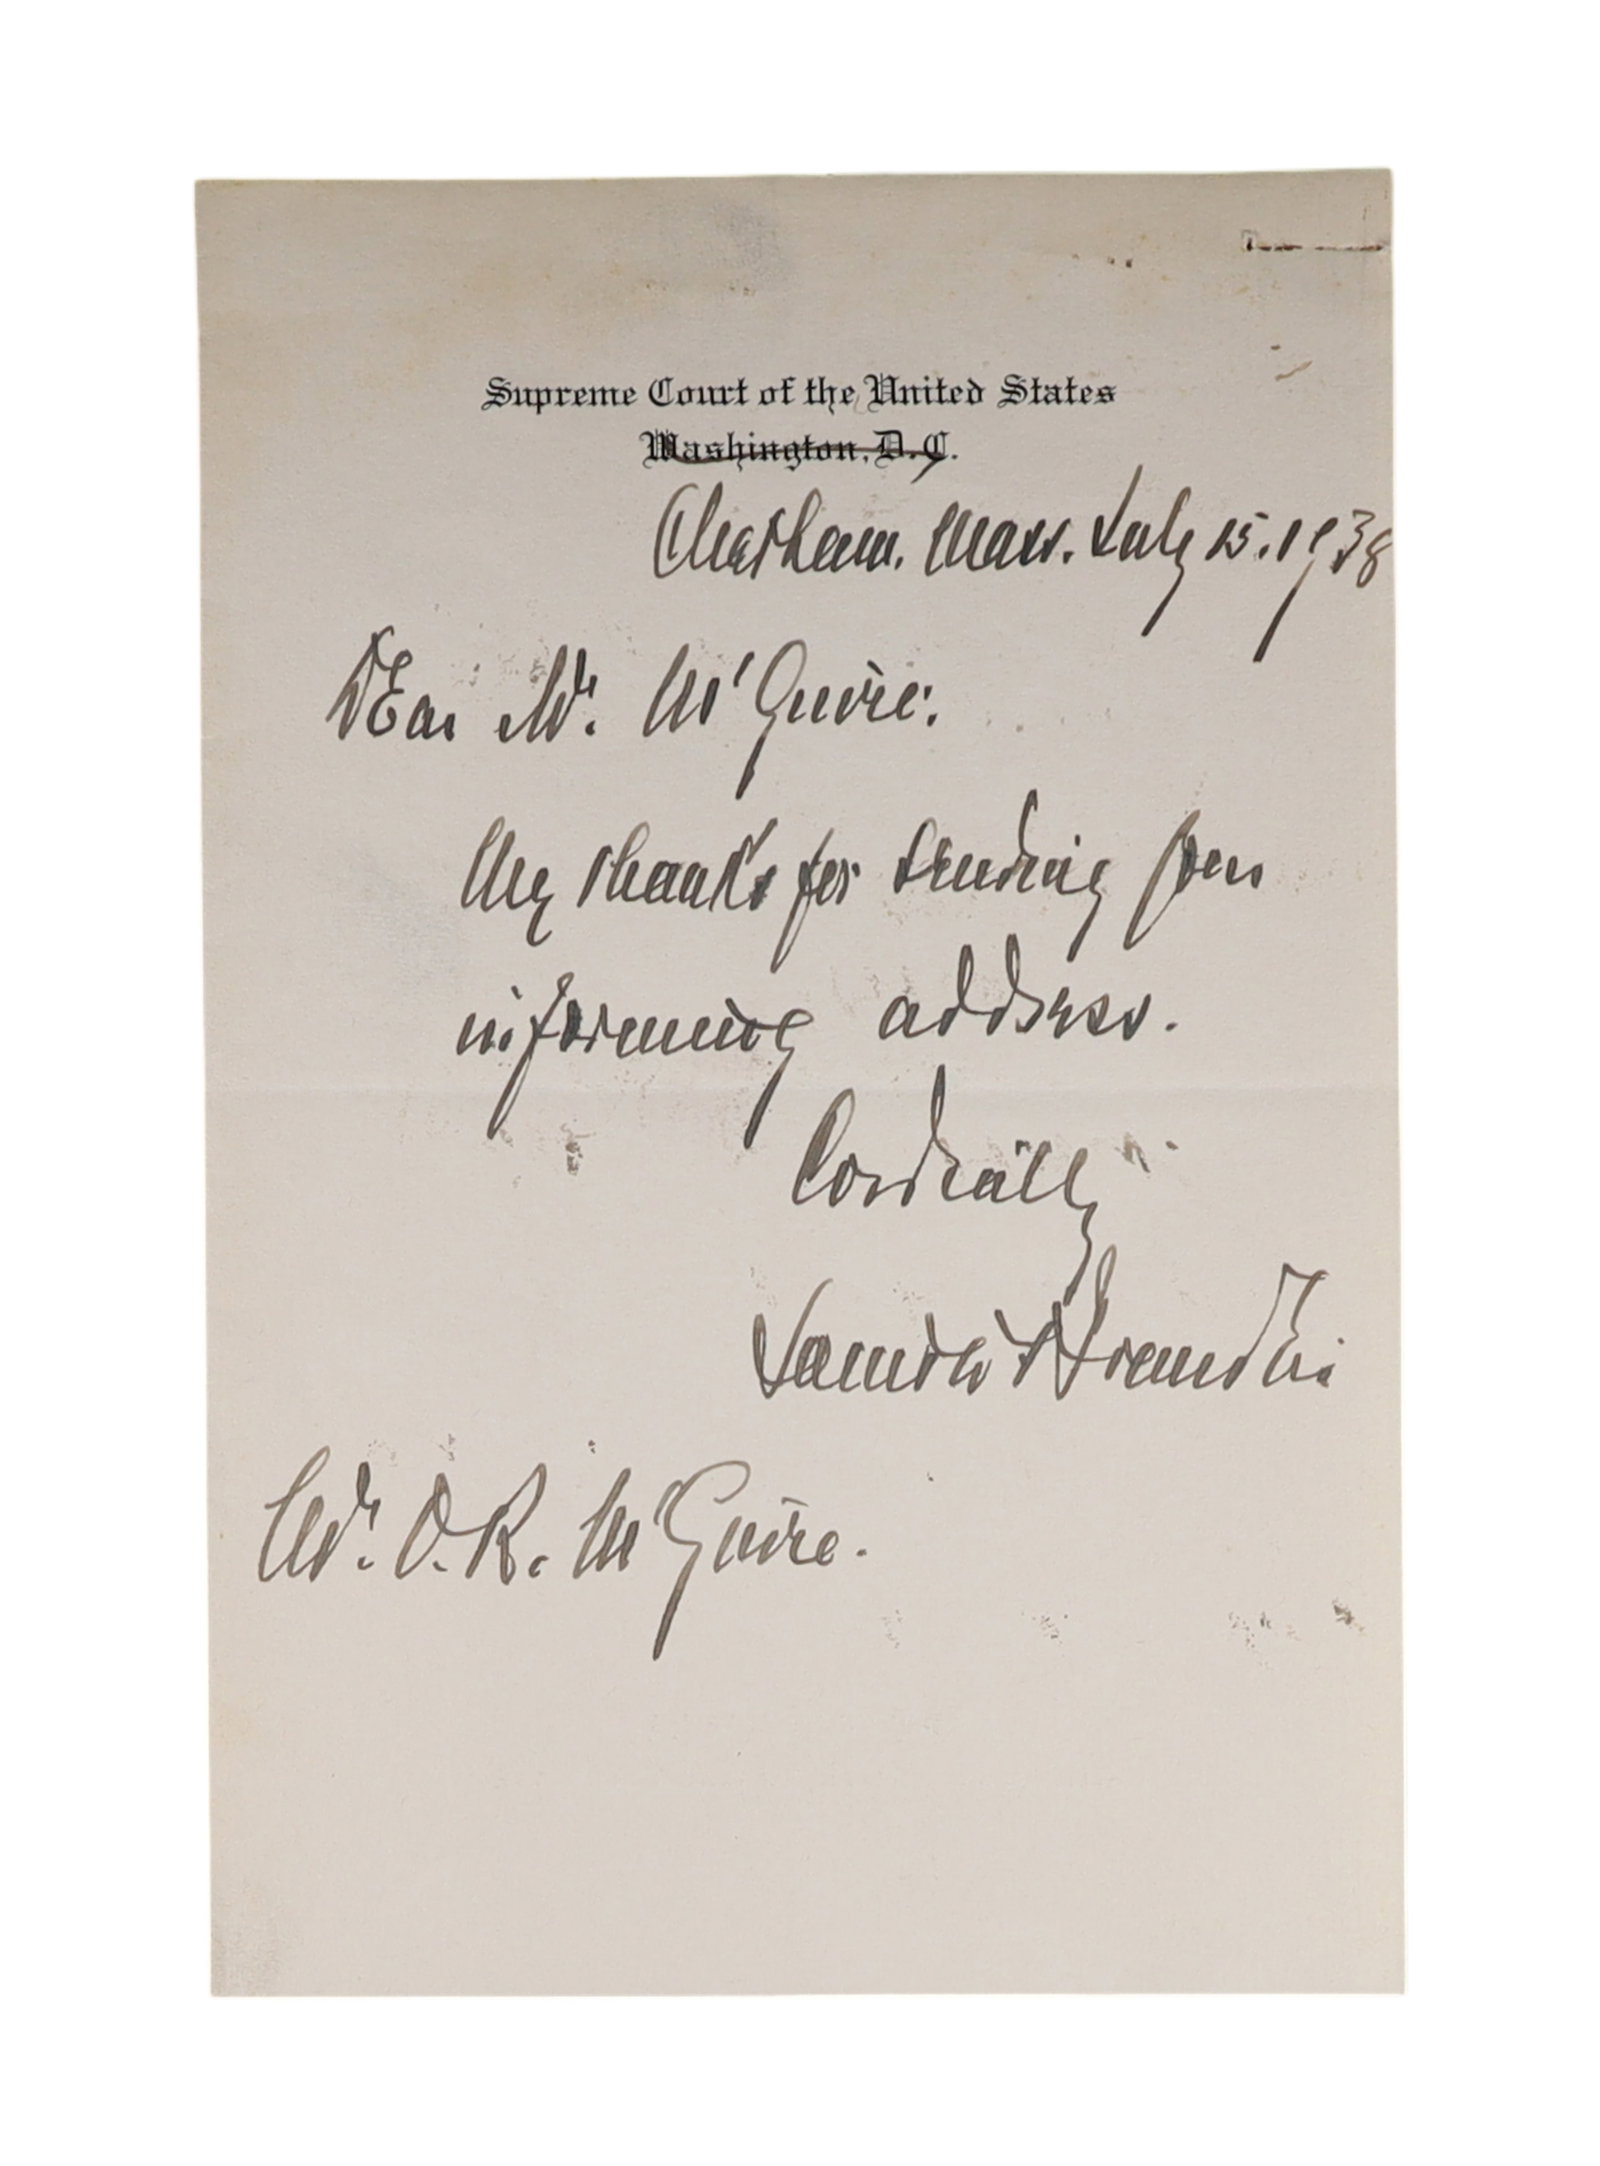 Supreme Court of the United States
Washington, D.C.
Chatham, Mass. July 15, 1938
Dear Mr. McGuire:
My thanks for sending your
informing address.
Cordially
Louis D Brandeis
Mr. O.R. McGuire.